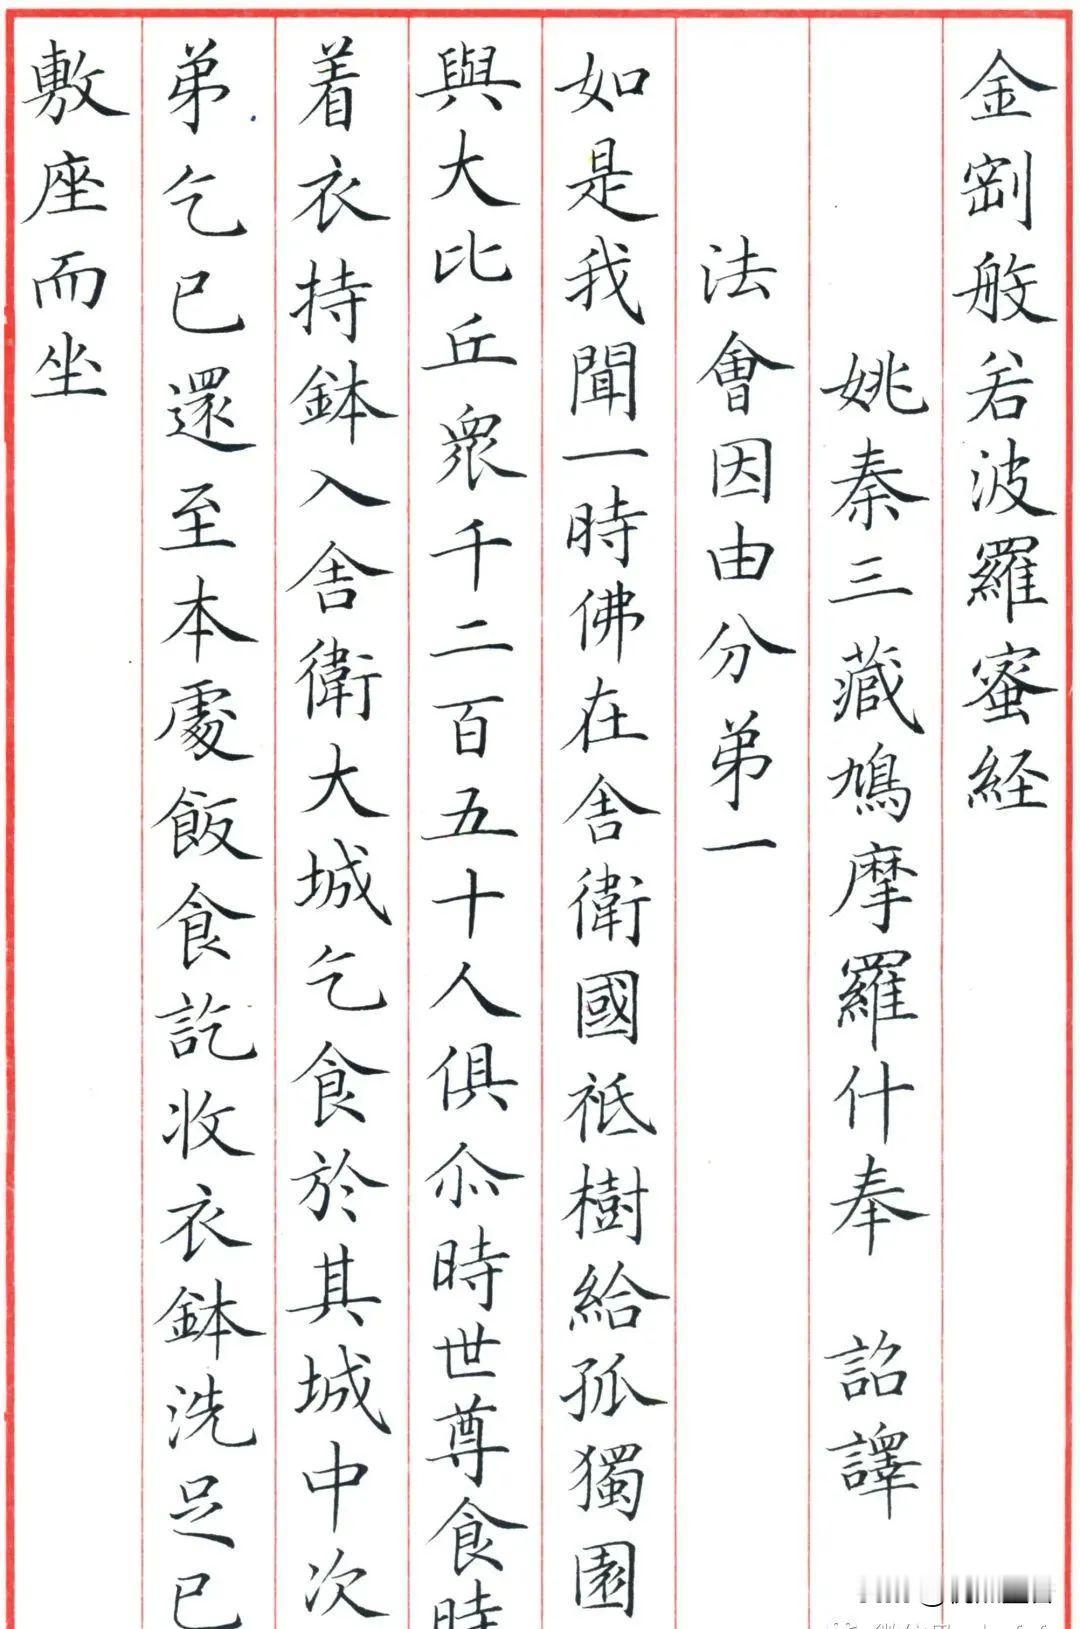 金剛般若波羅蜜経
姚秦三藏鳩摩羅什奉 詔譯
法會因由分弟一
如是我聞一時佛在舍衛國祇樹給孤獨園
與大比丘眾千二百五十人俱尒時世尊食時
着衣持鉢入舍衛大城乞食於其城中次
弟乞已還至本處飯食訖收衣鉢洗足已
敷座而坐